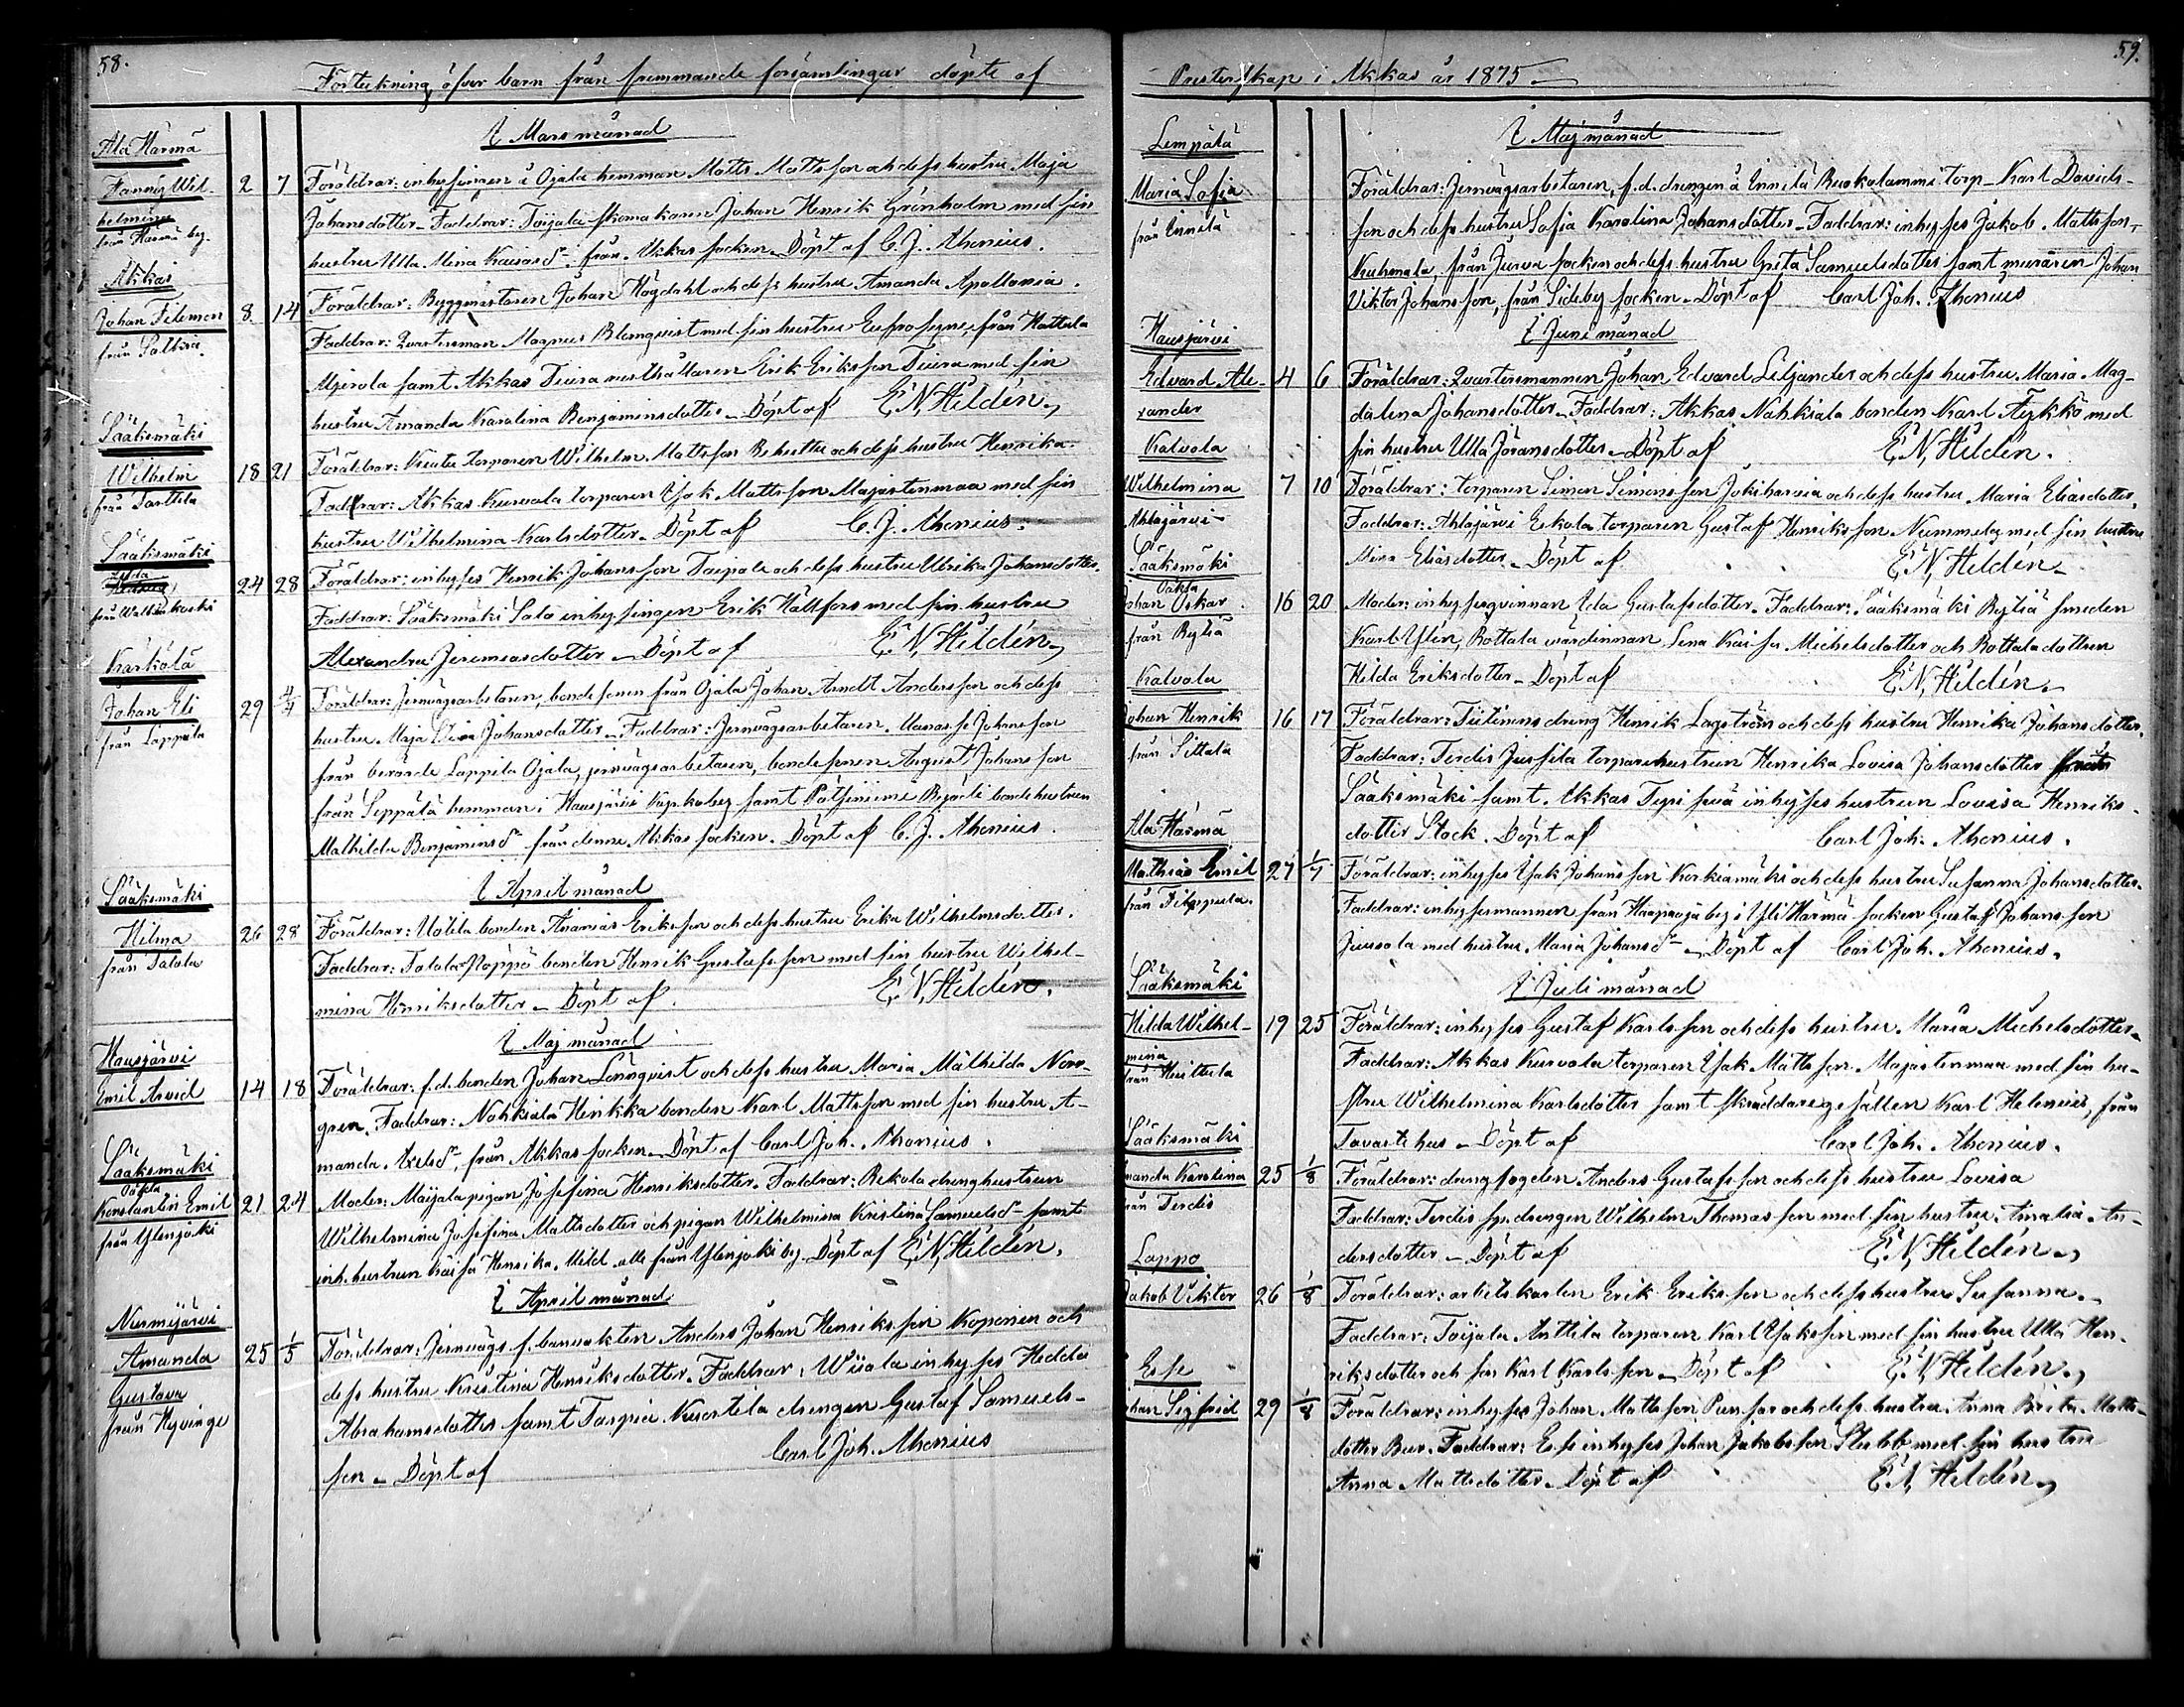 58.
Förteckning öfver barn från fremmande församlingar döpte af
I Mars månad
Ala Härmä
Fanny Wil-
helmina
från Härmä by.
2 7 Föräldrar: inhysingen i Ojala hemman Matts Mattsson och dess hustru Maja
Johansdotter. Faddrar: Toijala skomakaren Johan Henrik Grönholm med sin
hustru Ulla Mina Kaisasdr. från Akkas socken. Döpt af C. J. Ahonius.
Akkas
Johan Filemon
från Saltvia.
8 14 Föräldrar: Byggmästaren Johan Högdahl och dess hustru Amanda Apollonia.
Faddrar: Qvartersman Magnus Blomqvist med sin hustru Eufrosyne, från Hattula
Mjerola samt Akkas Tiura rusthållaren Erik Eriksson Tiura med sin
hustru Amanda Karolina Benjaminsdotter. Döpt af E. N. Hildén.
Sääksmäki
Wilhelm
från Tarttila
18 21 Föräldrar: torparen Wilhelm Mattsson och dess hustru Henrika.
Faddrar: Akkas Kurvala torparen Isak Mattsson Majastenmaa med sin
hustru Wilhelmina Karlsdotter. Döpt af C. J. Ahonius.
Sääksmäki
från Walkiakoski
24 28 Föräldrar: inhyses Henrik Johansson Taipale och dess hustru Ulrika Johansdotter.
Faddrar: Sääksmäki Salo inhysingen Erik Hällfors med sin hustru
Alexandra Jeremiasdotter. Döpt af E. N. Hildén
Kärkölä
Johan Eli
från Lappila
29 4/4 Föräldrar: Jernvägsarbetaren, bondesonen från Ojala Johan Arndt Andersson och dess
hustru Maja Johansdotter. Faddrar: Jernvägsarbetaren Manasse Johansson
från berörde Lappila Ojala, jernvägsarbetaren, bondesonen August Johansson
från Seppälä hemman i Hausjärvi by samt bondehustrun
Mathilda Benjaminsdr. från denne Akkas socken. Döpt af C. J. Ahonius.
I April månad
Sääksmäki
Hilma
från Salola
26 28 Föräldrar: Uotila bonden Ananias Eriksson och dess hustru Erika Wilhelmsdotter.
Faddrar: bonden Henrik Gustafsson med sin hustru Wilhel-
mina Henriksdotter. Döpt af E. N. Hildén.
I Maj månad
Hausjärvi
Emil Arvid
14 18 Föräldrar: f.d. bonden Johan Lönnqvist och dess hustru Maria Mathilda Norr-
gren. Faddrar: Nahkiala Heikkä bonden Karl Mattsson med sin hustru A-
manda Axelsdr. från Akkas socken. Döpt af Carl Joh. Ahonius.
Sääksmäki
Oäkta
Konstantin Emil
från Ylenjoki
21 24 Moder: pigan Josefina Henriksdotter. Faddrar: Rekola drenghustrun
Wilhelmina Josefina Mattsdotter och pigan Wilhelmina Kristina Samuelsdr. samt
inh. hustrun Kaisa Henrika Mild alla från Ylenjoki by. Döpt af E. N. Hildén.
I April månad
Nurmijärvi
Amanda
Gustava
från Hyvinge
25 1/5 Föräldrar: Jernvägs f. banvakten Anders Johan Henriksson Koponen och
dess hustru Kristina Henriksdotter. Faddrar: Wiiala inhyses Hedda
Abrahamsdotter samt Tarpia drengen Gustaf Samuels-
son. Döpt af Carl Joh. Ahonius
59.
Presterskap i Akkas år 1875
I Maj månad
Lempälä
Maria Sofia
från Innilä
Föräldrar: Jernvägsarbetaren, f.d. drengen å Innilä torp Karl Davids-
son och dess hustru Sofia Karolina Johansdotter. Faddrar: inhyses Jakob Mattsson
från Jurva socken och dess hustru Greta Samuelsdotter samt muraren Johan
Viktor Johansson, från Sideby socken. Döpt af Carl Joh. Ahonius
I Juni månad
Hausjärvi
Edvard Ale-
xander
4 6 Föräldrar: Qvartersmannen Johan Edvard Liljander och dess hustru Maria Mag-
dalena Johansdotter. Faddrar: Akkas Nahkiala bonden Karl Äijkkö med
sin hustru Ulla Jöransdotter. Döpt af E. N. Hildén.
Kalvola
Wilhelmina
Ahlajärvi
7 10 Föräldrar: torparen Simon Simonsson Jokiharvia och dess hustru Maria Eliasdotter.
Faddrar: Ahlajärvi Eskola torparen Gustaf Henriksson Nummela med sin hustru
Miva Eliasdotter. Döpt af E. N. Hildén
Sääksmäki
Oäkta
Johan Oskar
från Rytiä
16 20 Moder: inhysesqvinnan Ida Gustafsdotter. Faddrar: Sääksmäki Rytiä smeden
Karl Ylin, Rottala värdinnan Lena Kaisa Michelsdotter och Rottala dottren
Hilda Eriksdotter. Döpt af E. N. Hildén.
Kalvola
Johan Henrik
från Sittala
16 17 Föräldrar: dreng Henrik Lagström och dess hustru Henrika Johansdotter.
Faddrar: Terdis Jussila torparehustrun Henrika Lovisa Johansdotter från
Sääksmäki samt Akkas inhyseshustrun Lovisa Henriks-
dotter Stock. Döpt af Carl Joh. Ahonius.
Ala Härmä
Mathias Emil
från Filppula.
27 1/7 Föräldrar: inhyses Isak Johansson Korkiamäki och dess hustru Susanna Johansdotter.
Faddrar: inhysesmannen från Haapoja by i Yli Härmä socken Gustaf Johansson
Jiussola med hustru Maria Johansdr. Döpt af Carl Joh. Ahonius.
I Juli månad
Sääksmäki
Hilda Wilhel-
mina
från Huittula
19 25 Föräldrar: inhyses Gustaf Karlsson och dess hustru Maria Michelsdotter.
Faddrar: Akkas Kurvola torparen Isak Mattsson Majastenmaa med sin hu-
stru Wilhelmina Karlsdotter samt skräddaregesällen Karl Helenius, från
Tavastehus. Döpt af Carl Joh. Ahonius.
Sääksmäki
manda Karolina
från Terdis
25 1/8 Föräldrar: drengfogden Anders Gustafsson och dess hustru Lovisa
Faddrar: Terdis drengen Wilhelm Thomasson med sin hustru Amalia An-
dersdotter. Döpt af E. N. Hildén
Lappo
Jakob Viktor
26 1/8 Föräldrar: arbetskarlen Erik Eriksson och dess hustru Susanna.
Faddrar: Toijala Anttila torparen Karl Isaksson med sin hustru Ulla Hen-
riksdotter och son Karl Karlsson. Döpt af E. N. Hildén
Esse
ohan Sigfrid
29 1/8 Föräldrar: inhyses Johan Mattsson och dess hustru Anna Brita Matts-
dotter Bur. Faddrar: Esse inhyses Johan Jakobsson Stubb med sin hustru
Anna Mattsdotter. Döpt af E. N. Hildén